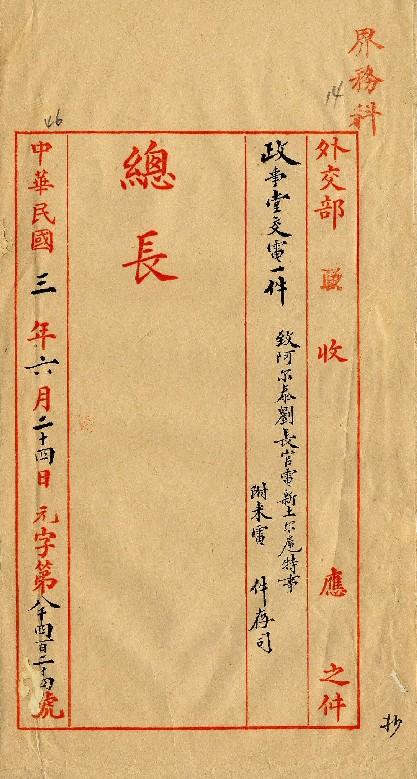 界務科
14
外交部 收 應 之件
政事堂交電一件
致阿尔泰劉長官電新土尔扈特事
附来電 件存司
總長
46
中華民國 三 年 六 月 二十四 日 元字第 八千四百二十四 號
抄